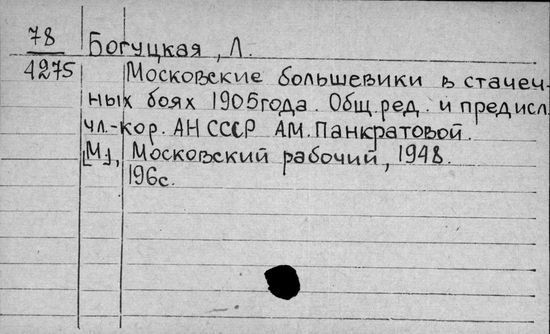 78
4275
Богуцкая, Л.
Московские большевики в стачеч-
ных боях 1905 года. Общ. ред. и предисл.
чл.-кор. АН СССР А.М. Панкратовой.
[М.], Московский рабочий, 1948.
196с.